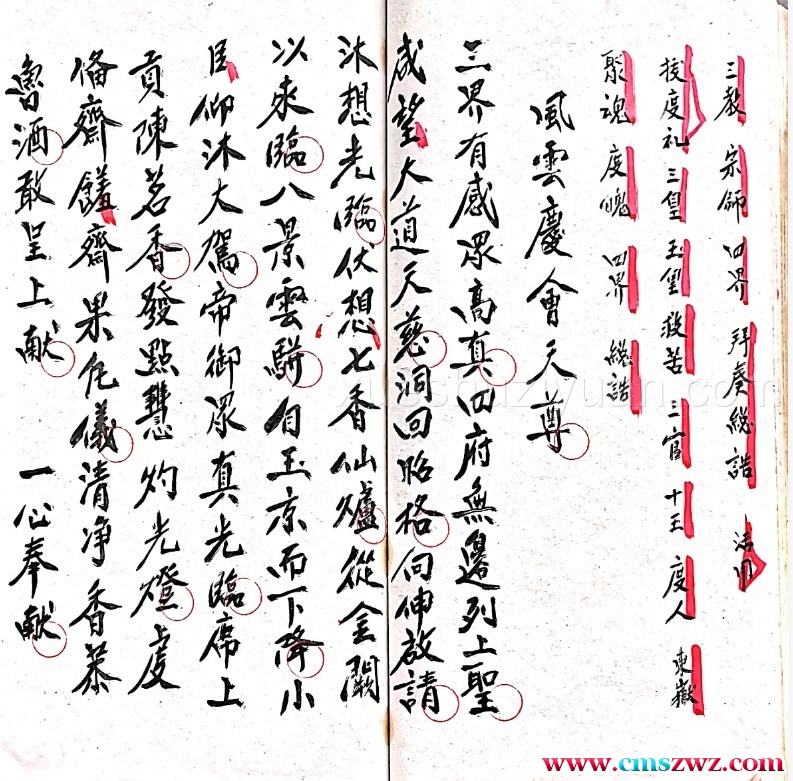 三教 宗師 四界 拜奏總誥
拔度礼 三皇 玉皇 救苦 三官 十王 度人 東嶽
聚魂 度魄 四界 總誥
風雲慶會天尊
三界有感眾高真四府無邊列上聖
咸望大道天慈洞回昭格向伸啟請
沐想光臨伏想七香仙爐從金闕
以來臨八景雲駢自玉京而下降小
臣仰沐大駕帝御眾真光臨席上
貢陳茗香發點慧灼光燈虔
俻齋饈齋果凢儀清净香茶
魯酒敢呈上献 一心奉献
xueshuziyuan.com
www.cmszwz.com